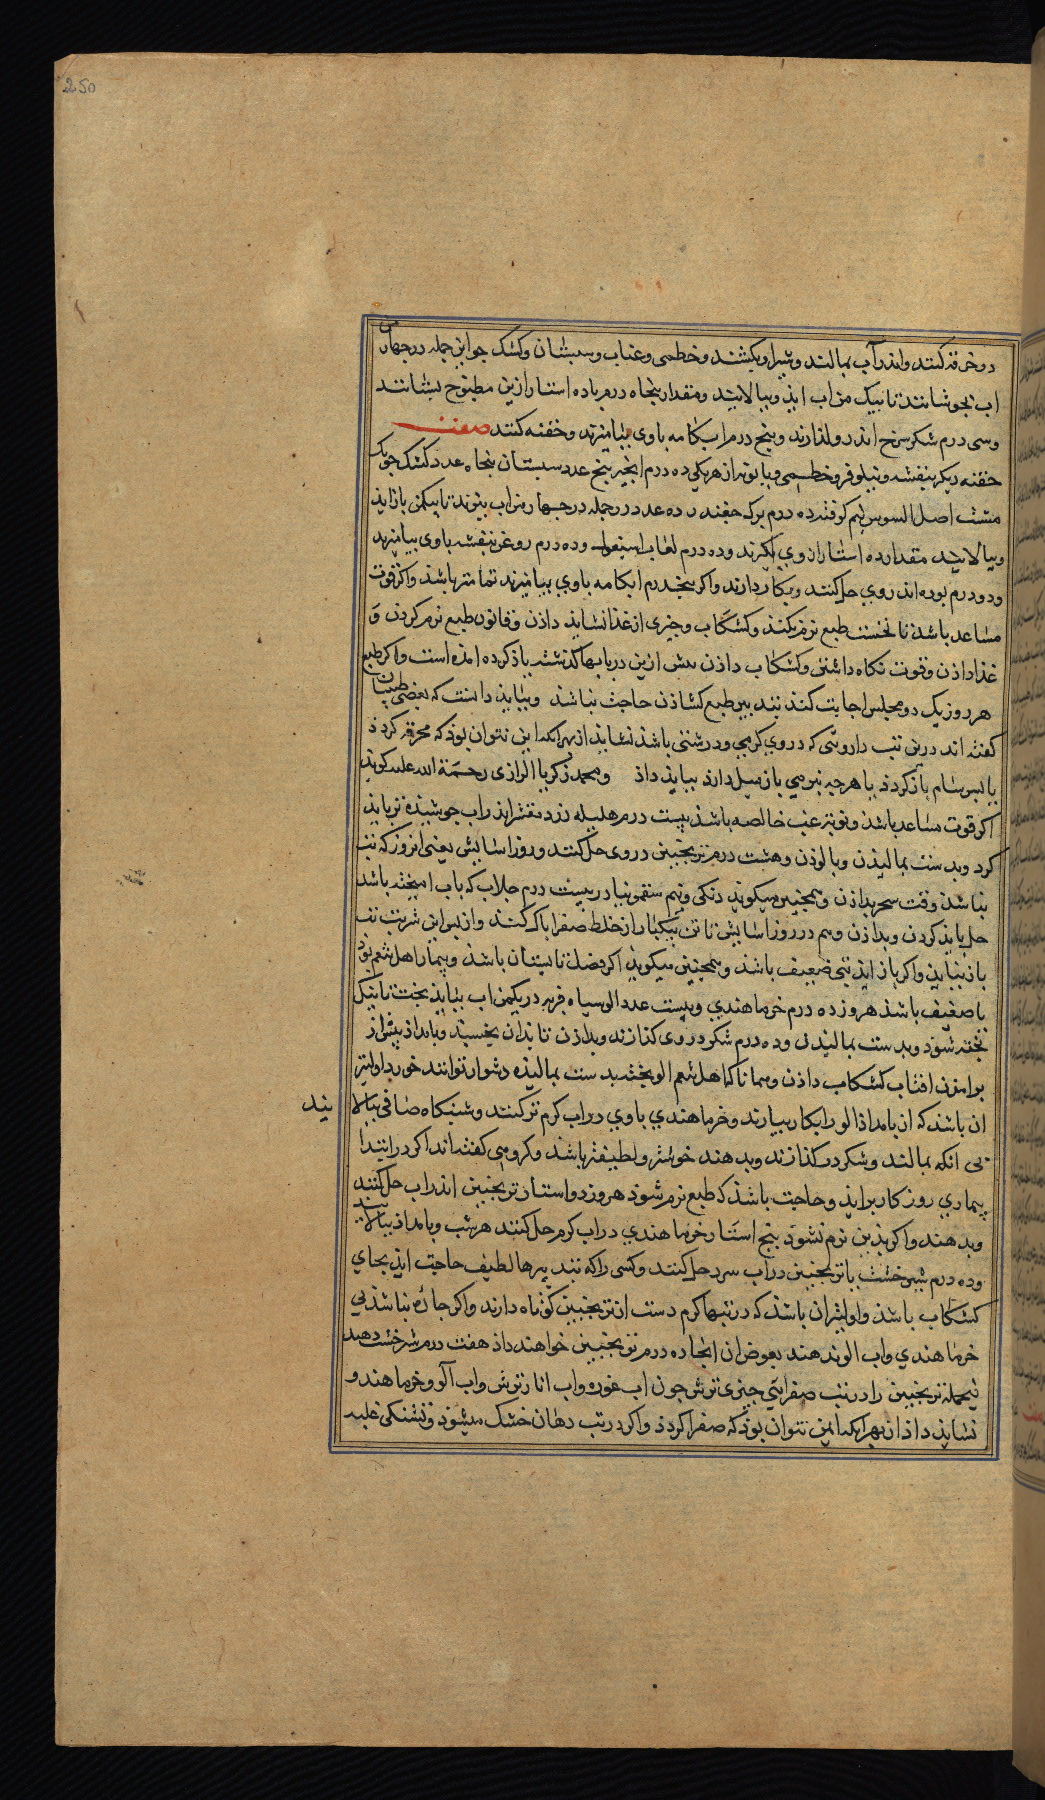 250
دو خرقه کنند و اندر آب بمالند و شیرا و بکشند و خطمی و عناب و سبستان و کشک جو این جمله در چهار من
اب بجوشانند تا بیک من اب اید و ببالایند و مقدار پنجاه درم یا ده استار ازین مطبوخ بستانند
و سی درم شکر سرخ اندر و بگذارند و پنج درم ابکامه با وی بیامیزند و حقنه کنند صفت
حقنه دیکر بنفشه و نیلوفر و خطمی و بابونه از هر یکی ده درم انجیر پنج عدد سبستان پنجاه عدد کشک جو یک
مشت اصل السوس نیم کوفته ده درم برک چغندر ده عدد در جمله در چهار من اب بپزند تا بیکمن باز اید
و ببالایند مقدار ده استار از وی بکیرند و ده درم لعاب اسبغول و ده درم روغن بنفشه با وی بیامیزند
و دو درم بوره اندر وی حل کنند و بکار دارند و اکر پنجدرم ابکامه با وی بیامیزند تمامتر باشذ و اکر قوت
مساعد باشذ تا نخست طبع نرم نکنند و کشکاب و چیزی از غذا نشاید داذن و قانون طبع نرم کردن و
غذا داذن و قوت نکاه داشتن و کشکاب داذن پیش ازین در بابهاء کذشته یاذ کرده امذه است و اکر طبع
هر روز یک دو مجلس اجابت کند بتدبیر طبع کشاذن حاجت نباشذ و بباید دانست که بعضی طبیبان
کفته اند درین تب داروئی که در وی کرمی و درشتی باشذ نشاید از بهر انکه ایمن نتوان بوذ که محرقه کردذ
یا بسرسام باز کردذ یا هرچه بنرمی باز میل دارد بباید داذ و محمد زکریا الرازی رحمة الله علیه کوید
اکر قوت مساعد باشذ و نوبة غب خالصه باشذ بیست درم هلیله زرد مقشر اندر اب جوشیذه تر باید
کرد و بدست بمالیذن و بالوذن و هشت درم ترنجبین در وی حل کنند و روز اسایش یعنی ان روز که تب
نباشذ وقت سحر بداذن و همچنین میکوید دنکی و نیم سقمونیا در بیست درم جلاب که باب امیخته باشد
حل باید کردن و بداذن و هم در روز اسایش تا تن بیکبار از خلط صفرا پاک کند و از پس این شربت تب
باز نیاید و اکر باز اید تبی ضعیف باشذ و همچنین میکوید اکر فصل تابستان باشذ و بیمار اهل تنعم بوذ
یا ضعیف باشذ هر روز ده درم خرما هندی و بیست عدد الو سیاه فربه در یکمن اب بباید پخت تا نیک
پخته شوذ و بدست بمالیذن و ده درم شکر در وی کذازند و بداذن تا بدان بخسبد و بامداد پیش از
برامذن افتاب کشکاب داذن و همانا که اهل تنعم الو پخته بدست بمالیذه دشوار توانند خورد اولیتر
ان باشذ که ان بامداذ الو را بکار بیارند و خرما هندی با وی در اب کرم تر کنند و شبنکاه صافی ببالایند
بی انکه بمالند و شکر در کذازند و بدهند خوشتر و لطیفتر باشذ و کروهی کفته اند اکر در ابتدا
بیماری روز کار براید و حاجت باشذ که طبع نرم شوذ هر روز دو استار ترنجبین اندر اب حل کنند
و بدهند و اکر بذین نرم نشوذ پنج استار خرما هندی در اب کرم حل کنند هر شب و بامداذ ببالایند
و ده درم شیرخشت یا ترنجبین در اب سرد حل کنند و کسی را که تدبیرها لطیف حاجت اید بجای
کشکاب باشذ و اولیتر ان باشذ که در تبهاء کرم دست از ترنجبین کوتاه دارند و اکر چاره نباشذ بی
خرما هندی و اب الو ندهند بعوض ان انجا ده درم ترنجبین خواهند داذ هفت درم شیرخشت دهند
فی الجمله ترنجبین را در تب صفرایی بی چیزی ترش چون اب غوره و اب انار ترش و اب آلو و خرما هندو
نشاید داذ از بهر انکه ایمن نتوان بوذ که صفرا کردذ و اکر در تب دهان خشک میشوذ و تشنکی غلبه